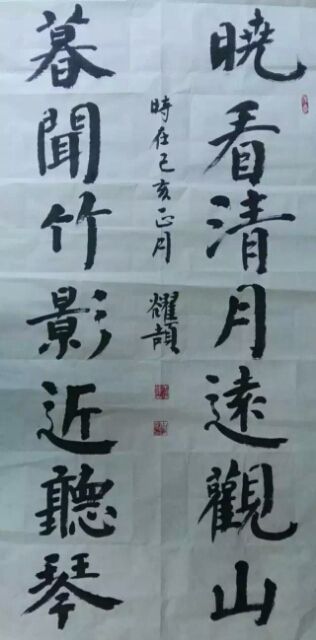 曉看清月遠觀山
暮聞竹影近聽琴
時在己亥正月
耀頡